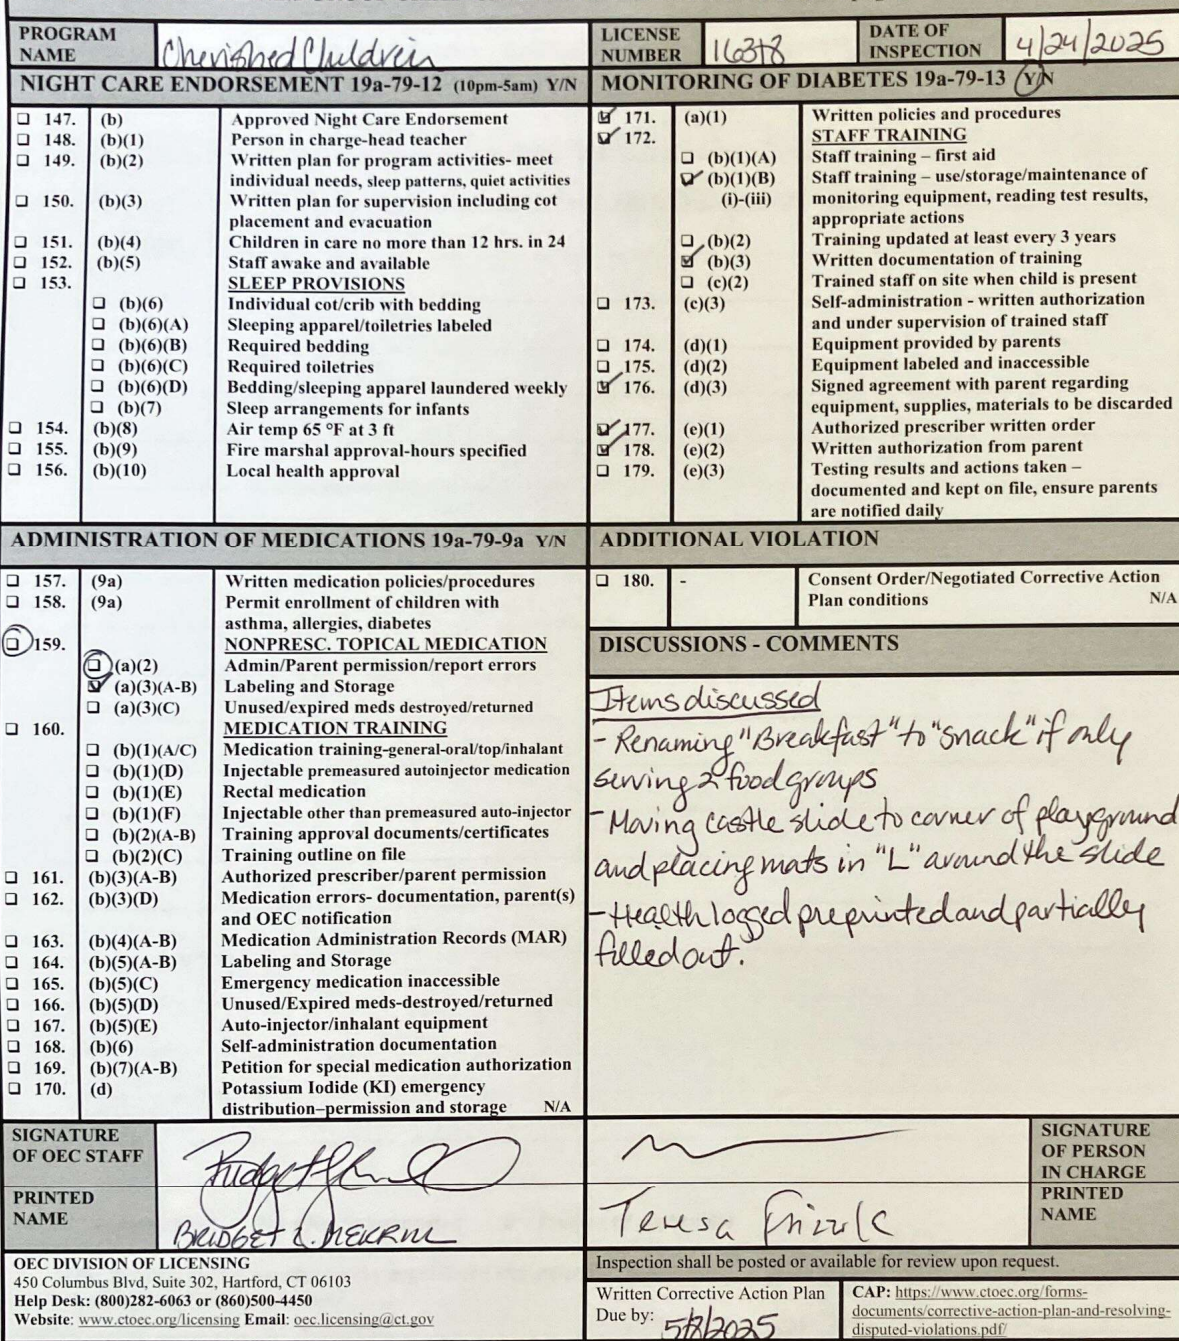 PROGRAM NAME Cherished Children LICENSE NUMBER DATE OF INSPECTION 4/24/2025
NIGHT CARE ENDORSEMENT 19a-79-12 (10pm-5am) Y/N
147. (b) Approved Night Care Endorsement
148. (b)(1) Person in charge-head teacher
149. (b)(2) Written plan for program activities- meet
individual needs, sleep patterns, quiet activities
150. (b)(3) Written plan for supervision including cot
placement and evacuation
151. (b)(4) Children in care no more than 12 hrs. in 24
152. (b)(5) Staff awake and available
153. SLEEP PROVISIONS
(b)(6) Individual cot/crib with bedding
(b)(6)(A) Sleeping apparel/toiletries labeled
(b)(6)(B) Required bedding
(b)(6)(C) Required toiletries
(b)(6)(D) Bedding/sleeping apparel laundered weekly
(b)(7) Sleep arrangements for infants
154. (b)(8) Air temp 65 °F at 3 ft
155. (b)(9) Fire marshal approval-hours specified
156. (b)(10) Local health approval
MONITORING OF DIABETES 19a-79-13 Y/N
171. (a)(1) Written policies and procedures
172. STAFF TRAINING
(b)(1)(A) Staff training – first aid
(b)(1)(B) Staff training – use/storage/maintenance of
(i)-(iii) monitoring equipment, reading test results,
appropriate actions
(b)(2) Training updated at least every 3 years
(b)(3) Written documentation of training
(c)(2) Trained staff on site when child is present
173. (c)(3) Self-administration - written authorization
and under supervision of trained staff
174. (d)(1) Equipment provided by parents
175. (d)(2) Equipment labeled and inaccessible
176. (d)(3) Signed agreement with parent regarding
equipment, supplies, materials to be discarded
177. (e)(1) Authorized prescriber written order
178. (e)(2) Written authorization from parent
179. (e)(3) Testing results and actions taken –
documented and kept on file, ensure parents
are notified daily
ADMINISTRATION OF MEDICATIONS 19a-79-9a Y/N
157. (9a) Written medication policies/procedures
158. (9a) Permit enrollment of children with
asthma, allergies, diabetes
159. NONPRESC. TOPICAL MEDICATION
(a)(2) Admin/Parent permission/report errors
(a)(3)(A-B) Labeling and Storage
(a)(3)(C) Unused/expired meds destroyed/returned
160. MEDICATION TRAINING
(b)(1)(A/C) Medication training-general-oral/top/inhalant
(b)(1)(D) Injectable premeasured autoinjector medication
(b)(1)(E) Rectal medication
(b)(1)(F) Injectable other than premeasured auto-injector
(b)(2)(A-B) Training approval documents/certificates
(b)(2)(C) Training outline on file
161. (b)(3)(A-B) Authorized prescriber/parent permission
162. (b)(3)(D) Medication errors- documentation, parent(s)
and OEC notification
163. (b)(4)(A-B) Medication Administration Records (MAR)
164. (b)(5)(A-B) Labeling and Storage
165. (b)(5)(C) Emergency medication inaccessible
166. (b)(5)(D) Unused/Expired meds-destroyed/returned
167. (b)(5)(E) Auto-injector/inhalant equipment
168. (b)(6) Self-administration documentation
169. (b)(7)(A-B) Petition for special medication authorization
170. (d) Potassium Iodide (KI) emergency
distribution–permission and storage N/A
ADDITIONAL VIOLATION
180. - Consent Order/Negotiated Corrective Action
Plan conditions N/A
DISCUSSIONS - COMMENTS
Items discussed
- Renaming "Breakfast" to "snack" if only
serving 2 food groups
- Moving castle slide to corner of playground
and placing mats in "L" around the slide
- Health logged preprinted and partially
filled out.
SIGNATURE OF OEC STAFF
SIGNATURE OF PERSON IN CHARGE
PRINTED NAME BRIDGET
Teresa PRINTED NAME
OEC DIVISION OF LICENSING
450 Columbus Blvd, Suite 302, Hartford, CT 06103
Help Desk: (800)282-6063 or (860)500-4450
Website: www.ctoec.org/licensing Email: oec.licensing@ct.gov
Inspection shall be posted or available for review upon request.
Written Corrective Action Plan
Due by: 5/8/2025
CAP: https://www.ctoec.org/forms-
documents/corrective-action-plan-and-resolving-
disputed-violations.pdf/